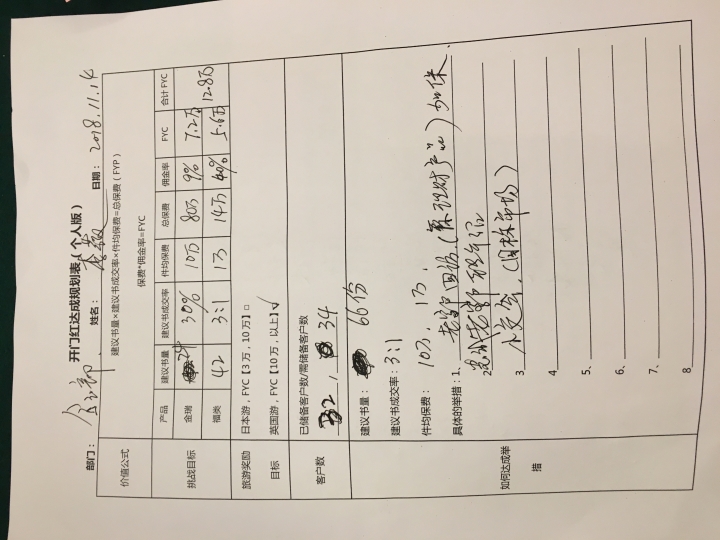 开门红达成规划表（个人版）
部门： 姓名： 日期：2018.11.14
价值公式 建议书量×建议书成交率×件均保费=总保费（FYP）
保费*佣金率=FYC
挑战目标 产品 建议书量 建议书成交率 件均保费 总保费 佣金率 FYC 合计FYC
金瑞 24 30% 10万 80万 9% 7.2万 12.8万
福类 42 3:1 1万 14万 40% 5.6万
旅游奖励 日本游，FYC【3万，10万】□
目标 英国游，FYC【10万，以上】☑
客户数 已储备客户数/需储备客户数
32，34
如何达成举措 建议书量： 66份
建议书成交率：3:1
件均保费： 10万，1万，
具体的举措：1、老客户回访（原理财产品）加保．
2、老客户转介绍
3、（目标市场）
4、
5、
6、
7、
8、